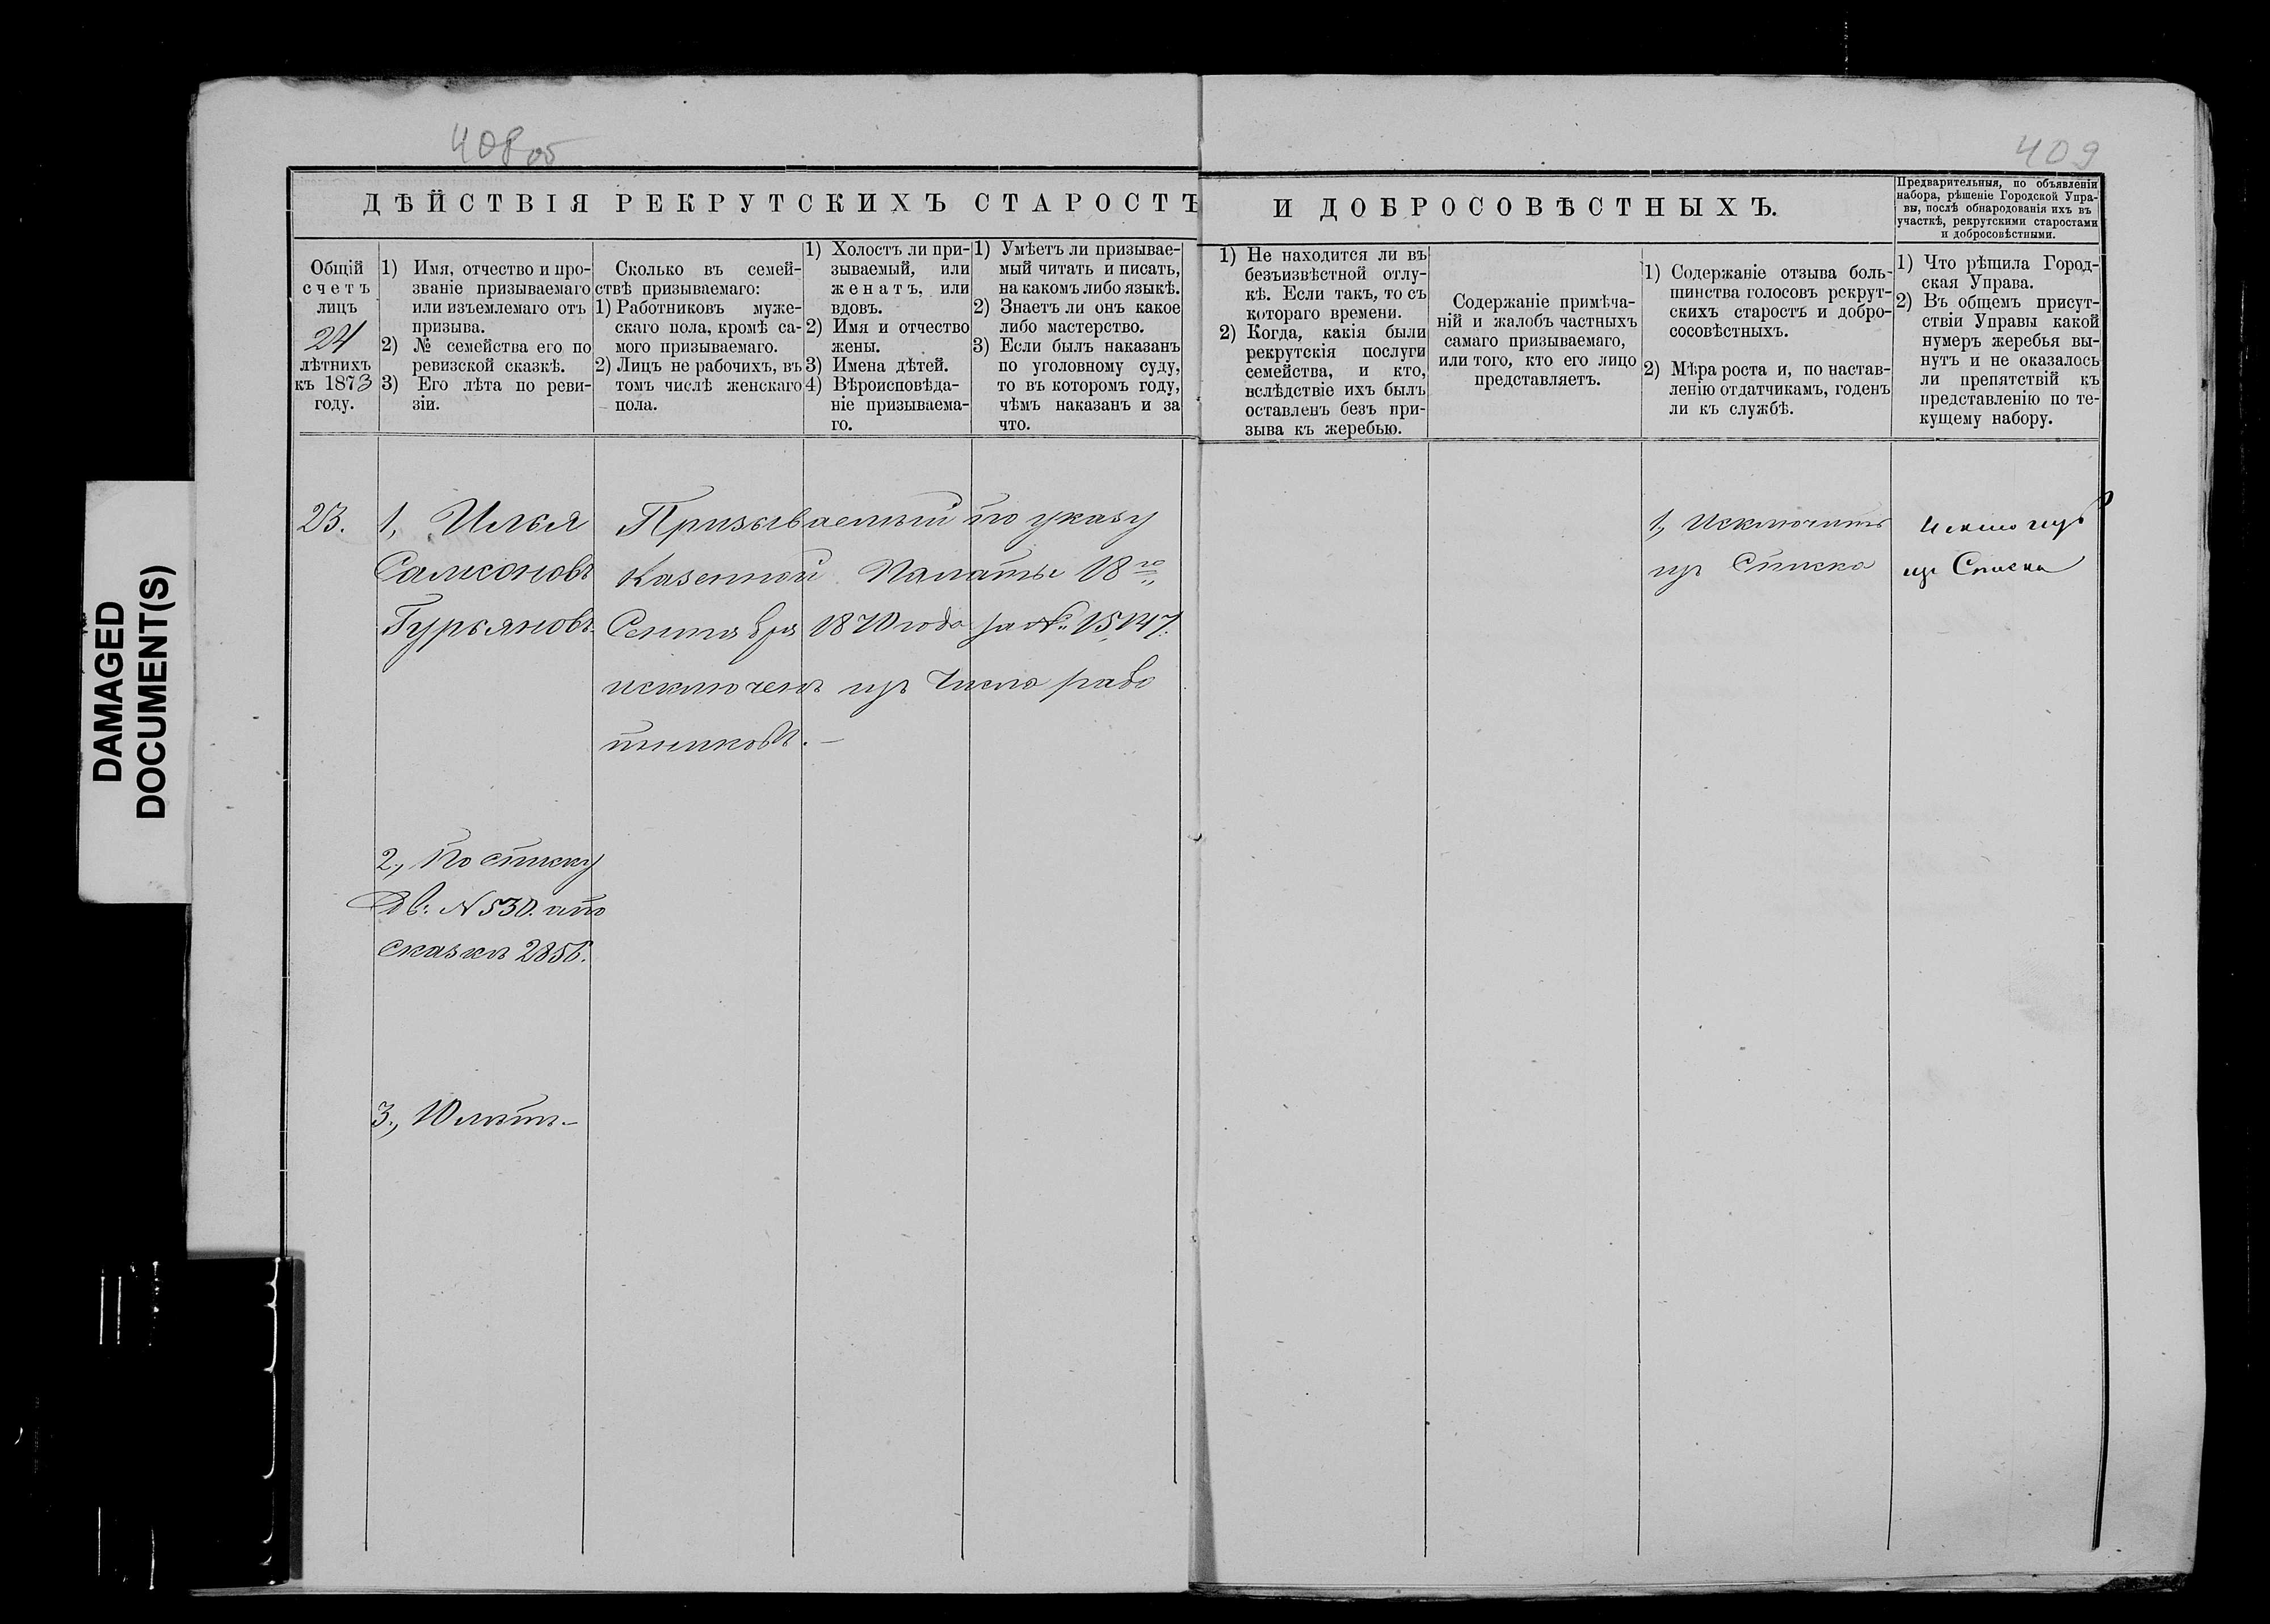 408 об
409
DAMAGED
DOCUMENT(S)
ДѢЙСТВІЯ РЕКРУТСКИХЪ СТАРОСТЪ
И ДОБРОСОВѢСТНЫХЪ.
Предварительныя, по объявленіи
набора, рѣшеніе Городской Упра-
вы, послѣ обнародованія ихъ въ
участкѣ, рекрутскими старостами
и добросовѣстными.
Общій
счетъ
лицъ
24
лѣтнихъ
къ 1873
году.
1) Имя, отчество и про-
званіе призываемаго
или изъемлемаго отъ
призыва.
2) № семейства его по
ревизской сказкѣ.
3) Его лѣта по реви-
зіи.
Сколько въ семей-
ствѣ призываемаго:
1) Работниковъ муже-
скаго пола, кромѣ са-
мого призываемаго.
2) Лицъ не рабочихъ, въ
томъ числѣ женскаго
пола.
1) Холостъ ли при-
зываемый, или
женатъ, или
вдовъ.
2) Имя и отчество
жены.
3) Имена дѣтей.
4) Вѣроисповѣда-
ніе призываема-
го.
1) Умѣетъ ли призывае-
мый читать и писать,
на какомъ либо языкѣ.
2) Знаетъ ли онъ какое
либо мастерство.
3) Если былъ наказанъ
по уголовному суду,
то въ которомъ году,
чѣмъ наказанъ и за
что.
1) Не находится ли въ
безъизвѣстной отлу-
кѣ. Если такъ, то съ
котораго времени.
2) Когда, какія были
рекрутскія послуги
семейства, и кто,
вслѣдствіе ихъ былъ
оставленъ безъ при-
зыва къ жеребью.
Содержаніе примѣча-
ній и жалобъ частныхъ
самаго призываемаго,
или того, кто его лицо
представляетъ.
1) Содержаніе отзыва боль-
шинства голосовъ рекрут-
скихъ старостъ и добро-
сосовѣстныхъ.
2) Мѣра роста и, по настав-
ленію отдатчикамъ, годенъ
ли къ службѣ.
1) Что рѣшила Город-
ская Управа.
2) Въ общемъ присут-
ствіи Управы какой
нумеръ жеребья вы-
нутъ и не оказалось
ли препятствій къ
представленію по те-
кущему набору.
23.
1, Илья
Самсоновъ
Гурьяновъ.
2., По списку
Дв: N 530. а по
сказкѣ 2856.
3., 10 лѣтъ.-
Призываемый по указу
Казенной Палаты 18го
Сентября 1870 года за №: 15147.
исключенъ изъ числа рабо
тниковъ. -
1, Исключить
изъ Списка
изъ Списка